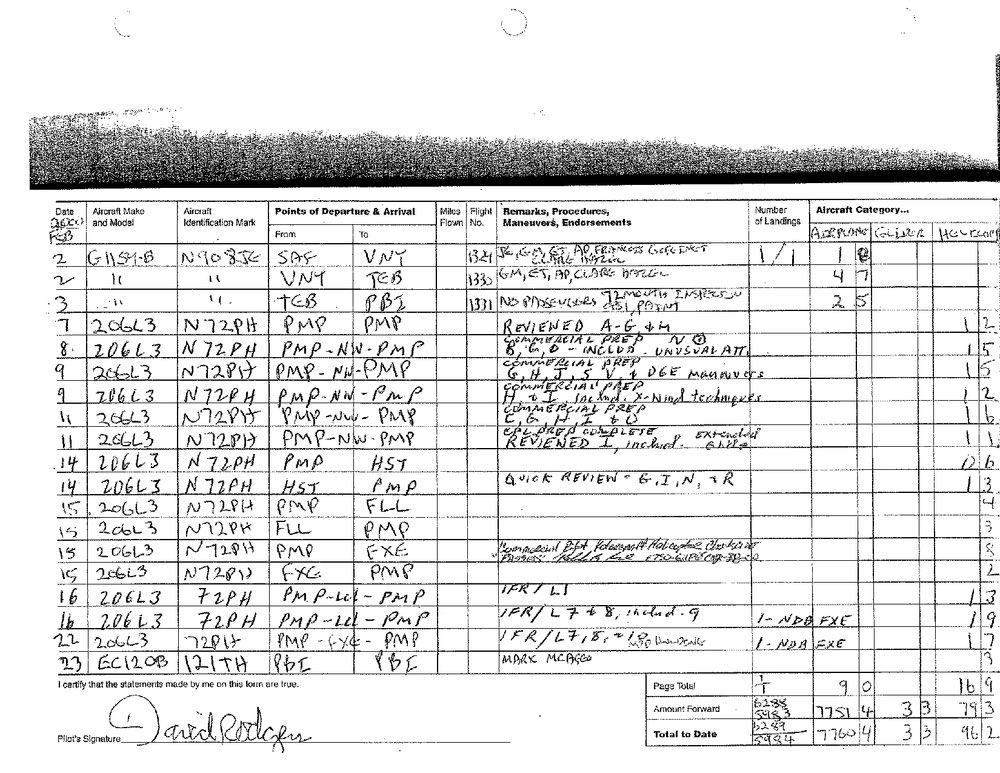 Date Aircraft Make and Model Aircraft Identification Mark Points of Departure & Arrival From To Miles Flown Flight No. Remarks, Procedures, Maneuvers, Endorsements Number of Landings Aircraft Category...
FEB AIRPLANE GLIDER HELICOPT
2 G1159-B N908JE SAF VNY 1329 JE, GM, ET, AP, 1/1 1 8
2 " " VNY TEB 1330 GM, ET, AP, CLARE HAZEL 4 7
3 " " TEB PBI 1331 NO PASSENGERS 72 MONTH INSPECTION PAINT 2 5
7 206L3 N72PH PMP PMP REVIEWED A-G & H 1 2
8 206L3 N72PH PMP-NW-PMP COMMERCIAL PREP B, G, O - INCLUD. UNUSUAL ATT. 1 5
9 206L3 N72PH PMP-NW-PMP COMMERCIAL PREP G, H, J, S, V, & DGE MANUVERS 1 5
9 206L3 N72PH PMP-NW-PMP COMMERCIAL PREP H & I, includ. X-Wind techniques 1 2
11 206L3 N72PH PMP-NW-PMP COMMERCIAL PREP C, G, H, I & O 1 6
11 206L3 N72PH PMP-NW-PMP CPL PREP COMPLETE REVIEWED I, includ. EXTENDED 1 1
14 206L3 N72PH PMP HST 0 6
14 206L3 N72PH HST PMP QUICK REVIEW - G, I, N, & R 1 3
15 206L3 N72PH PMP FLL 4
15 206L3 N72PH FLL PMP 3
15 206L3 N72PH PMP FXE Commercial Pilot Rotorcraft Helicopter 8
15 206L3 N72PH FXE PMP 2
16 206L3 72PH PMP-Lcl-PMP IFR/L1 1 3
16 206L3 72PH PMP-Lcl-PMP IFR/L7 & 8, includ. 9 1-NDB FXE 1 9
22 206L3 72PH PMP-FXE-PMP IFR/L7, 8, 1-NDB FXE 1 7
23 EC120B 121TH PBI PBI MARK 3
I certify that the statements made by me on this form are true.
Page Total 1/1 9 0 16 9
Amount Forward 6288 5983 7751 4 3 3 79 3
Total to Date 6289 5984 7760 4 3 3 96 2
Pilot's Signature David Rodgers